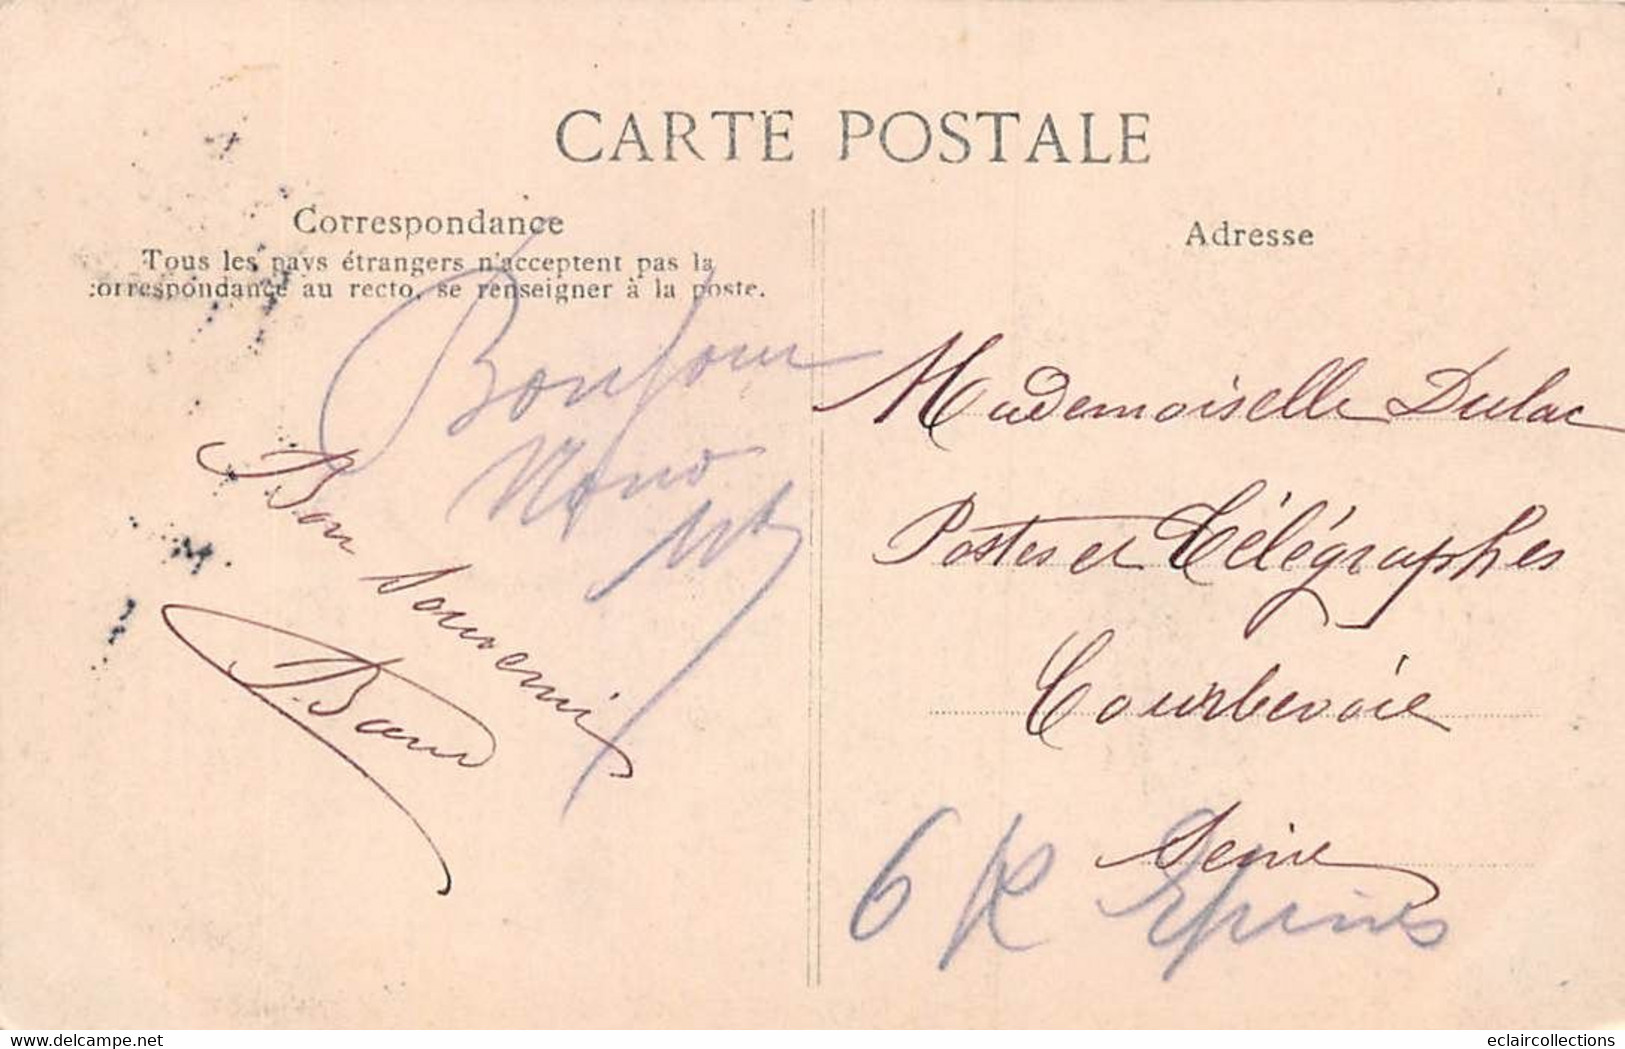 CARTE POSTALE
Correspondance
Tous les pays étrangers n'acceptent pas la
correspondance au recto, se renseigner à la poste.
Bonjour
Nono
Bon souvenir
Adresse
Mademoiselle Dulac
Postes et Télégraphes
Courbevoie
Seine
6 R Epines
delcampe.net
eclaircollections